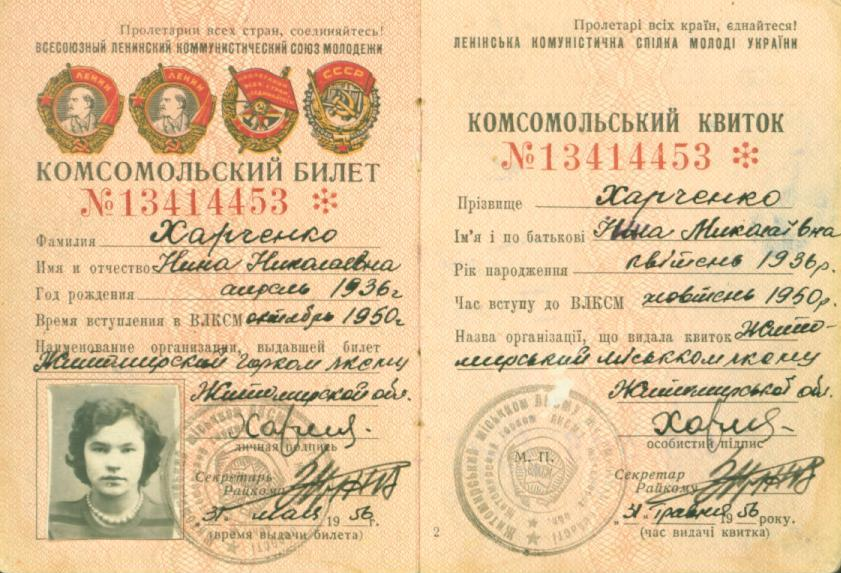 Пролетарии всех стран, соединяйтесь!
ВСЕСОЮЗНЫЙ ЛЕНИНСКИЙ КОММУНИСТИЧЕСКИЙ СОЮЗ МОЛОДЕЖИ
ЛЕНИН
ЛЕНИН
СССР
КОМСОМОЛЬСКИЙ БИЛЕТ
№13414453 *
Фамилия Харченко
Имя и отчество Нина Николаевна
Год рождения апрель 1936г
Время вступления в ВЛКСМ октябрь 1950г
Наименование организации, выдавшей билет
Житомирский горком лксму
Житомирской обл.
личная подпись
Секретарь
Райкома
31. мая 1956 г.
(время выдачи билета)
2
Пролетарі всіх країн, єднайтеся!
ЛЕНІНСЬКА КОМУНІСТИЧНА СПІЛКА МОЛОДІ УКРАЇНИ
КОМСОМОЛЬСЬКИЙ КВИТОК
№13414453 *
Прізвище Харченко
Ім'я і по батькові Ніна Миколаївна
Рік народження квітень 1936р.
Час вступу до ВЛКСМ жовтень 1950р.
Назва організації, що видала квиток Жито-
мирський міськком лксму
Житомирської обл.
особистий підпис
М. П.
Секретар
Райкому
„31" травня 1956 року.
(час видачі квитка)